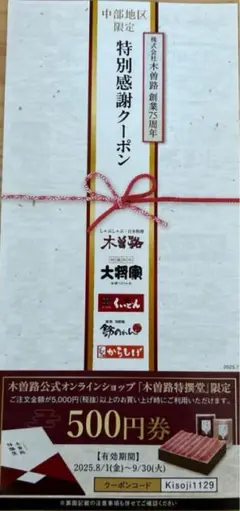 中部地区
限定
株式会社 木曽路 創業75周年
特別感謝クーポン
しゃぶしゃぶ・日本料理
木曽路
大将軍
くいどん
鈴のれん
からしげ
2025.7
木曽路公式オンラインショップ「木曽路特撰堂」限定
ご注文金額が5,000円(税抜)以上のお買い上げ時にご利用いただけます。
500円券
【有効期間】
2025.8/1(金)〜9/30(火)
クーポンコード Kisoji1129
※裏面記載の注意事項も併せてご確認ください。